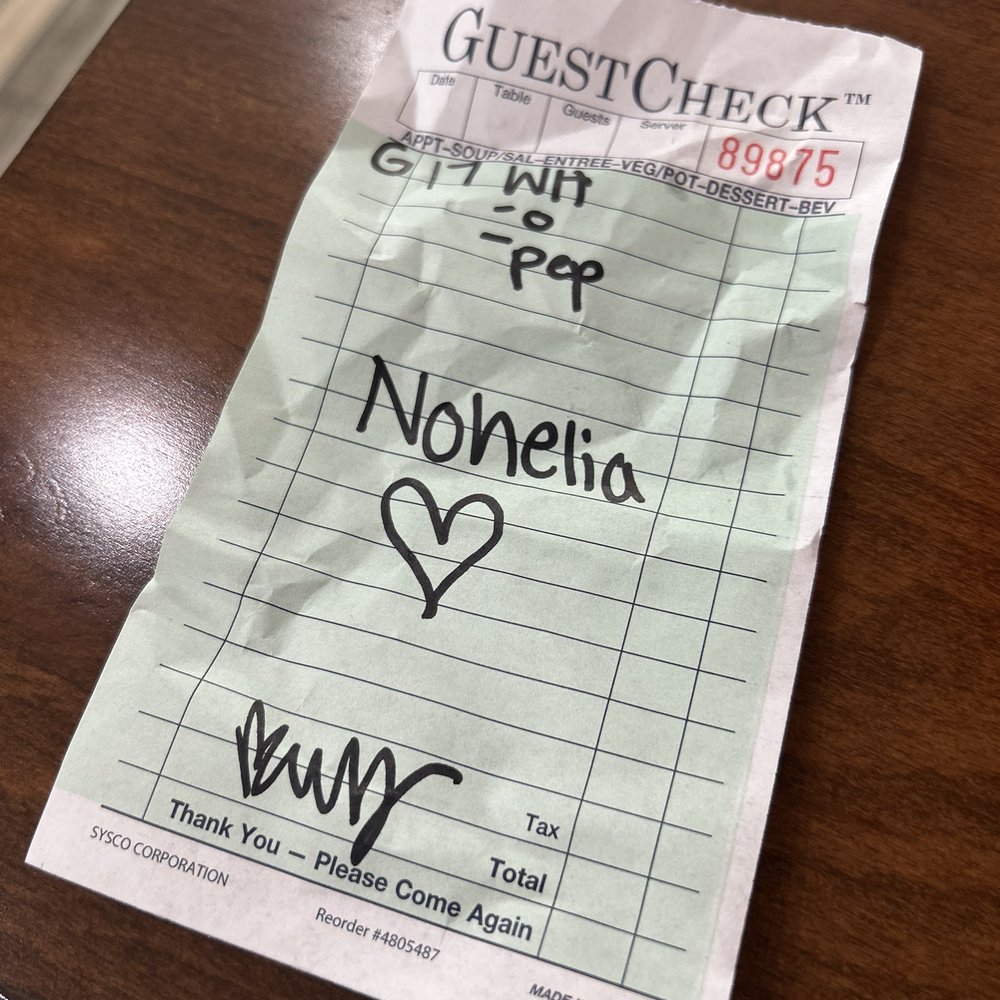 GUESTCHECK™
Date Table Guests Server
89875
APPT-SOUP/SAL-ENTREE-VEG/POT-DESSERT-BEV
WH
-o
-pep
Nohelia
Tax
Total
Thank You – Please Come Again
SYSCO CORPORATION
Reorder #4805487
MADE